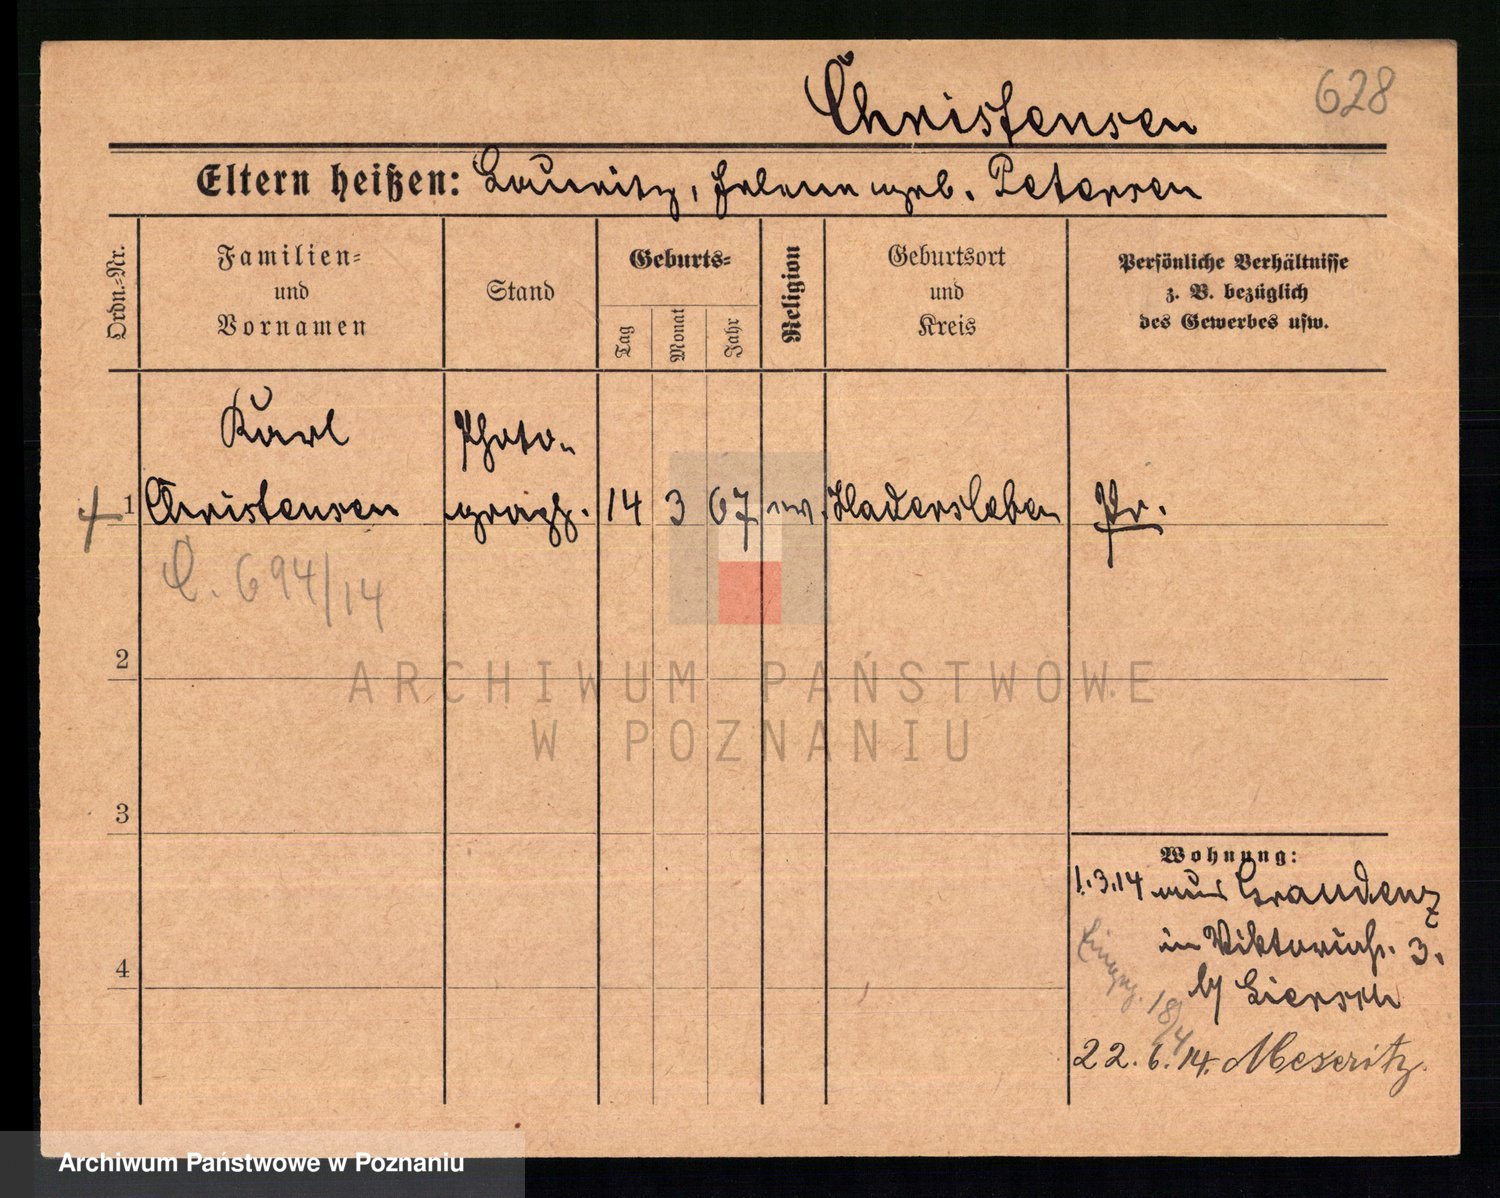 Christensen 628
Eltern heißen: Lauritz, Helene geb. Petersen
Ordn.=Nr.
Familien=
und
Vornamen
Stand
Geburts=
Tag
Monat
Jahr
Religion
Geburtsort
und
Kreis
Persönliche Verhältnisse
z. B. bezüglich
des Gewerbes usw.
Karl Photo-
1 Christensen graph. 14 3 67 ev. Hadersleben Pr.
C. 694/14
2
3
4
Wohnung:
1.3.14 aus Graudenz
in Viktoriastr. 3.
b/ Liersch
18/4
22.6.14. Meseritz.
ARCHIWUM PAŃSTWOWE
W POZNANIU
Archiwum Państwowe w Poznaniu